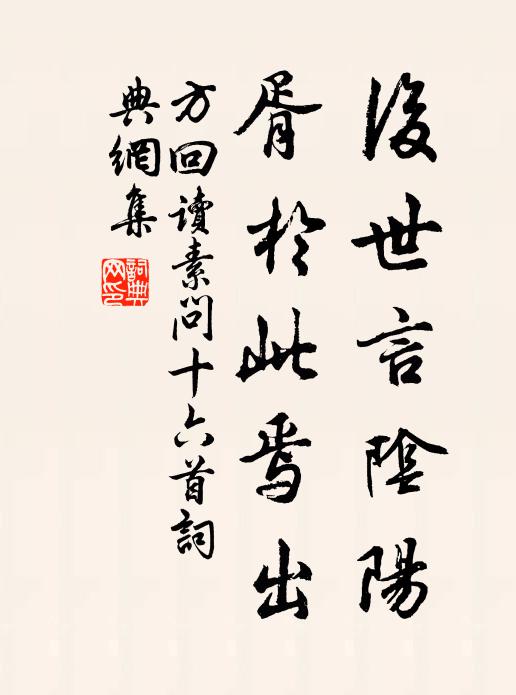 後世言陰陽
胥於此焉出
方回讀素問十六首詞
典網集
詞典網印